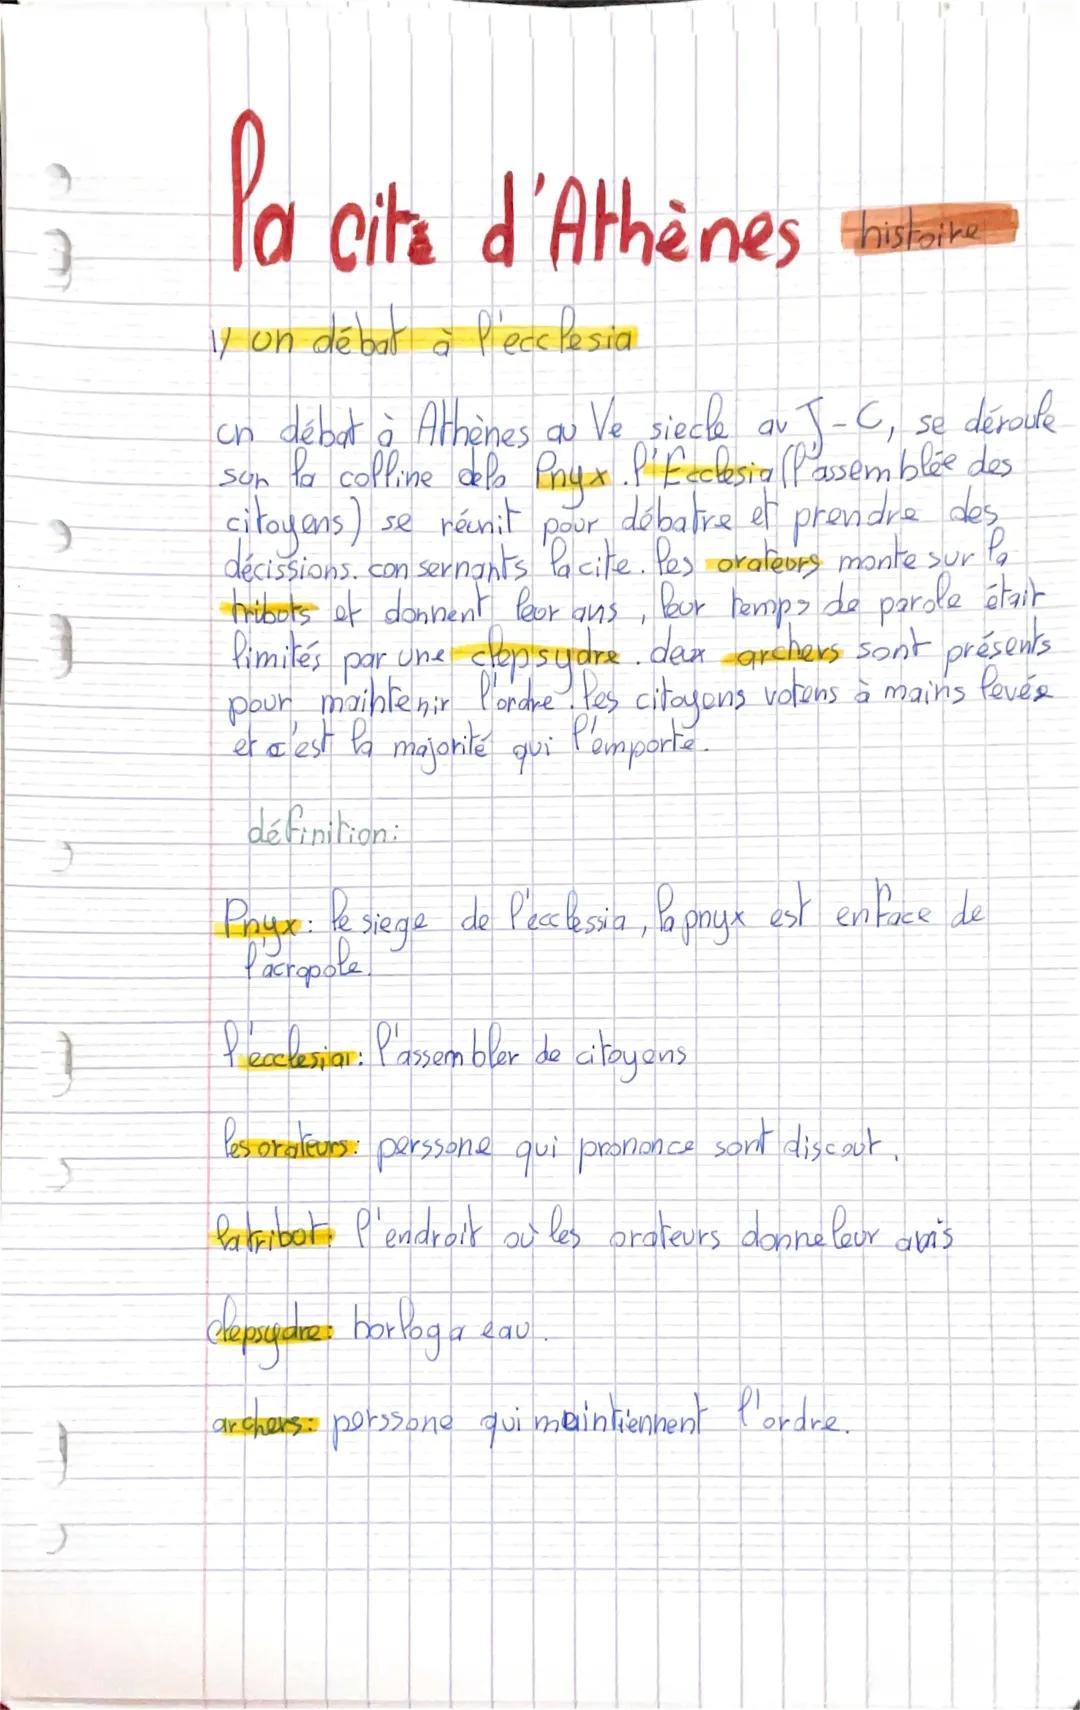 la cité d'Athènes histoire
1/ un débat à l'ecclesia
un débat à Athènes au Ve siecle av J-C, se déroule
sur la colline dela Pnyx. l'Ecclesia (l'assemblée des
citoyens) se réunit pour débatre et prendre des
décissions. con sernants la cite. les orateurs monte sur la
tribots et donnent leur avis, leur temps de parole était
limités par une clepsydre. deux archers sont présents
pour maintenir l'ordre. les citoyens votens à mains levée
et c'est la majorité qui l'emporte.
définition:
Pnyx: le siege de l'ecclessia, la pnyx est enface de
l'acropole.
l'ecclesiar: l'assembler de citoyens
les orateurs: perssone qui prononce sont discour.
la tribot: l'endroit où les orateurs donne leur avis
clepsydre: horlog a eau.
archers: perssone qui maintiennent l'ordre.